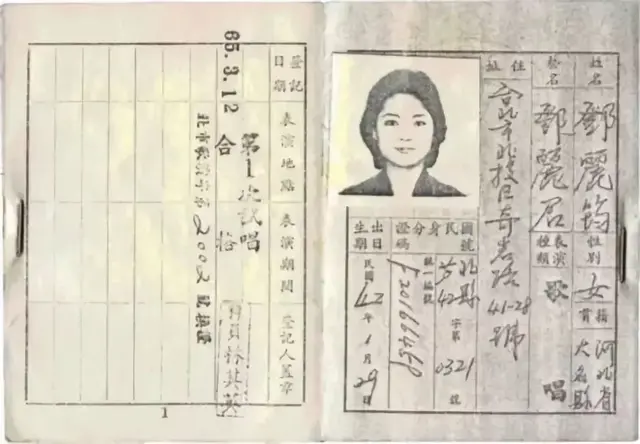 姓名 鄧麗筠 性別 女 籍貫 河北省大名縣
藝名 鄧麗君 表演種類 歌唱
住址 台北市北投區奇岩路41-28號
國民身分證號碼 北縣 字第 0321 號
統一編號 F20166459
出生日期 民國42年1月29日
登記日期 表演地點 表演期間 登記人蓋章
65.3.12
第1次試唱
合格
2002
員林其英
1